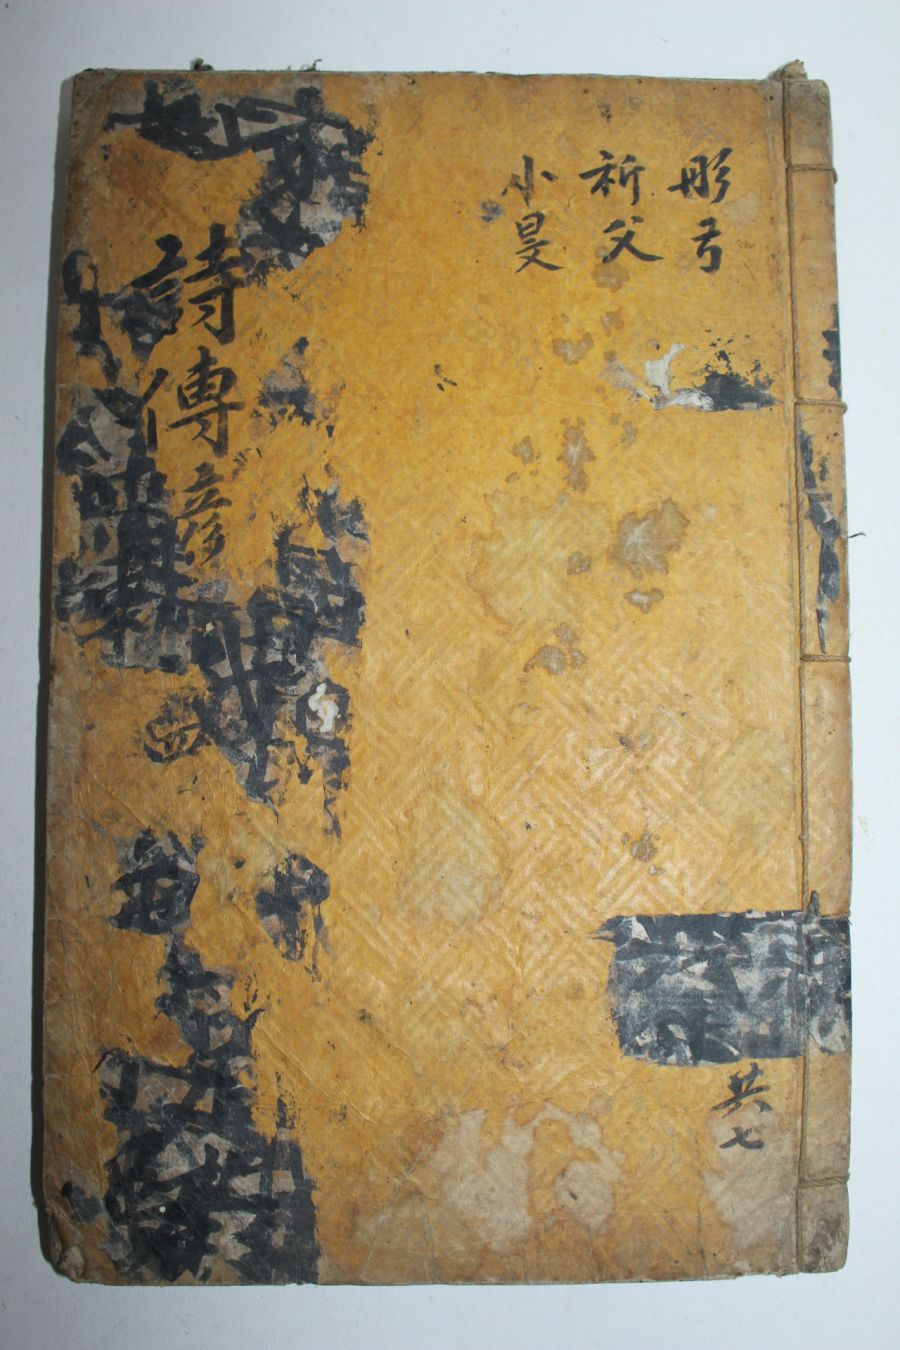 彤弓
祈父
小旻
詩傳
共七